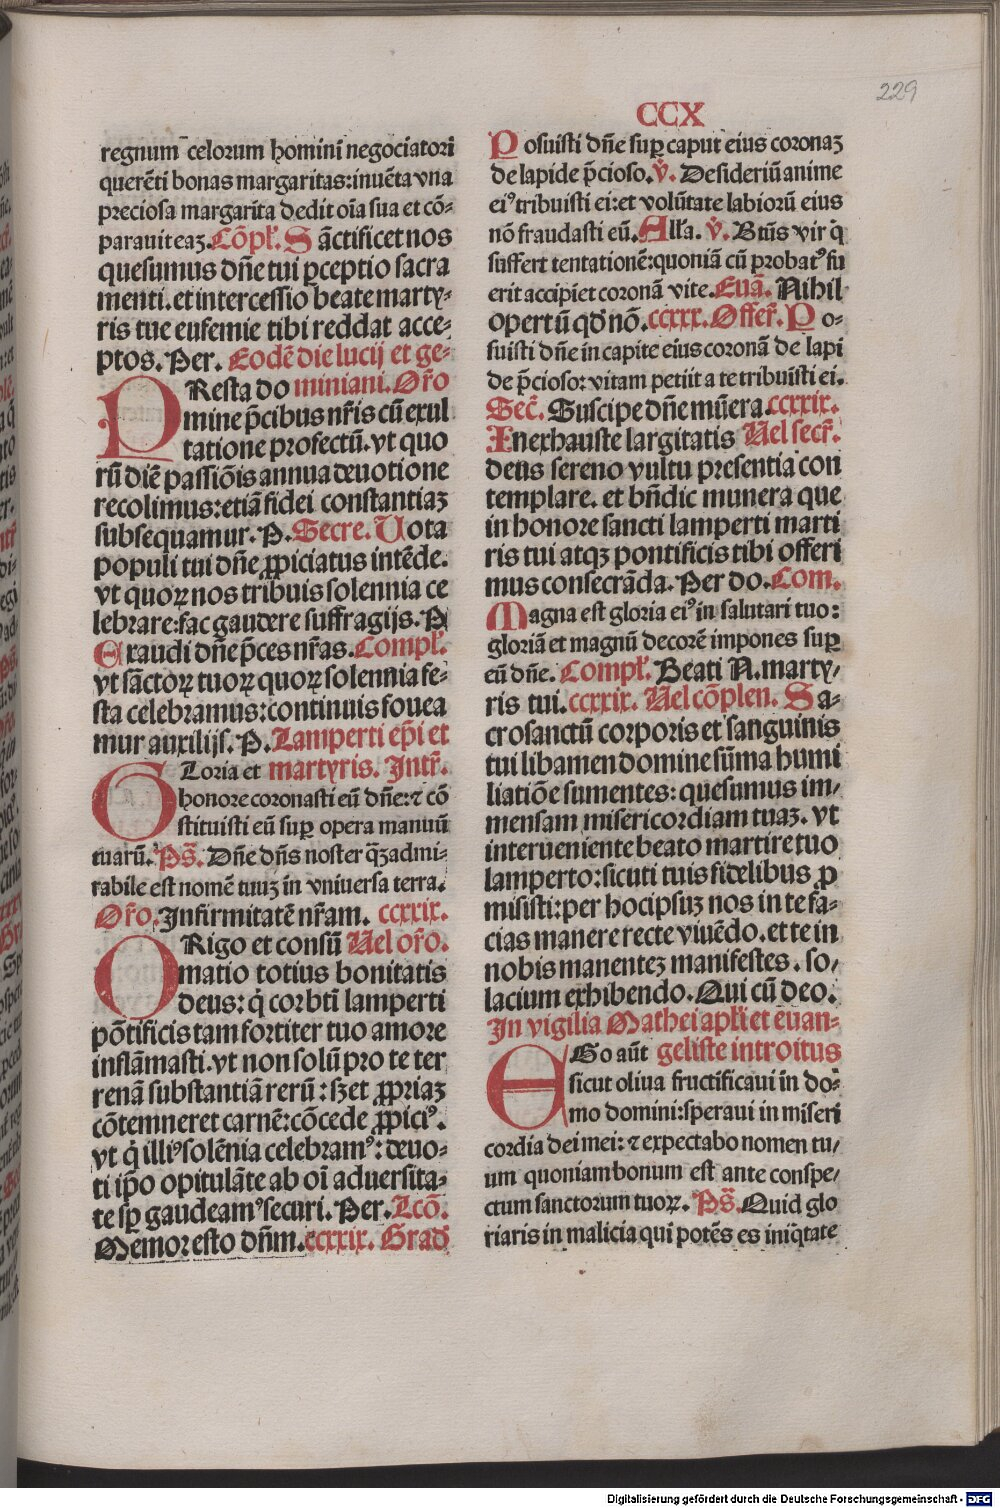 229
CCX
regnum celorum homini negociatori
querēti bonas margaritas: inuēta vna
preciosa margarita dedit oīa sua et cō-
parauit eaz. Cōpl'. Sāctificet nos
quesumus dn̄e tui ꝑceptio sacra
menti. et intercessio beate marty-
ris tue eufemie tibi reddat acce-
ptos. Per. Eodē die lucij et ge-
PResta do miniani. Or̄o
mine p̄cibus nr̄is cū exul
tatione profectū. vt quo
rū diē passiōis annua deuotione
recolimus: etiā fidei constantiaz
subsequamur. P. Secre. Uota
populi tui dn̄e ꝓpiciatus intēde.
vt quoꝝ nos tribuis solennia ce
lebrare: fac gaudere suffragijs. P
Exaudi dn̄e p̄ces nr̄as. Compl'.
vt sāctoꝝ tuoꝝ quoꝝ solennia fe-
sta celebramus: continuis fouea
mur auxilijs. P. Lamperti ep̄i et
GLoria et martyris. Intr̄.
honore coronasti eū dn̄e: ⁊ cō
stituisti eū suꝑ opera manuū
tuarū. Ps̄. Dn̄e dn̄s noster qz̄ admi-
rabile est nomē tuuz in vniuersa terra.
Or̄o. Infirmitatē nr̄am. ccxxix.
ORigo et consū Uel or̄o.
matio totius bonitatis
deus: q̇ cor btī lamperti
pōtificis tam fortiter tuo amore
inflāmasti. vt non solū pro te ter
renā substantiā rerū: sꝫet ꝓpriaz
cōtemneret carnē: cōcede ꝓpicꝰ.
vt q̇ illiꝰ solēnia celebramꝰ: deuo-
ti ip̄o opitulāte ab oī aduersita-
te sꝑ gaudeamꝰ securi. Per. Lcō.
Memor esto dn̄m. ccxxix. Grad'
Posuisti dn̄e suꝑ caput eius coronaz
de lapide p̄cioso. V̇. Desideriū anime
eiꝰ tribuisti ei: et volūtate labiorū eius
nō fraudasti eū. All'a. V̇. Btūs vir q̇
suffert tentationē: quoniā cū probatꝰ fu
erit accipiet coronā vite. Euā. Nihil
opertū qd̄ nō. ccxxx. Offer̄. Po-
suisti dn̄e in capite eius coronā de lapi
de p̄cioso: vitam petiit a te tribuisti ei.
Sec̄. Suscipe dn̄e mūera. ccxxix.
Inexhauste largitatis Uel secr̄.
deus sereno vultu presentia con
templare. et bn̄dic munera que
in honore sancti lamperti marti
ris tui atqꝫ pontificis tibi offeri
mus consecrāda. Per do. Com.
Magna est gloria eiꝰ in salutari tuo:
gloriā et magnū decorē impones suꝑ
eū dn̄e. Compl'. Beati N. marty-
ris tui. ccxxix. Uel cōplen. Sa-
crosanctū corporis et sanguinis
tui libamen domine sūma humi
liatiōe sumentes: quesumus im-
mensam misericordiam tuaz. vt
interueniente beato martire tuo
lamperto: sicuti tuis fidelibus ꝓ
misisti: per hoc ipsuz nos in te fa-
cias manere recte viuēdo. et te in
nobis manentez manifestes. so-
lacium exhibendo. Qui cū deo.
In vigilia Mathei apl'i et euan-
EGo aūt geliste introitus
sicut oliua fructificaui in do-
mo domini: speraui in miseri
cordia dei mei: ⁊ expectabo nomen tu-
um quoniam bonum est ante conspe-
ctum sanctorum tuoꝝ. Ps̄. Quid glo
riaris in malicia qui potēs es iniq̇tate
Digitalisierung gefördert durch die Deutsche Forschungsgemeinschaft - DFG